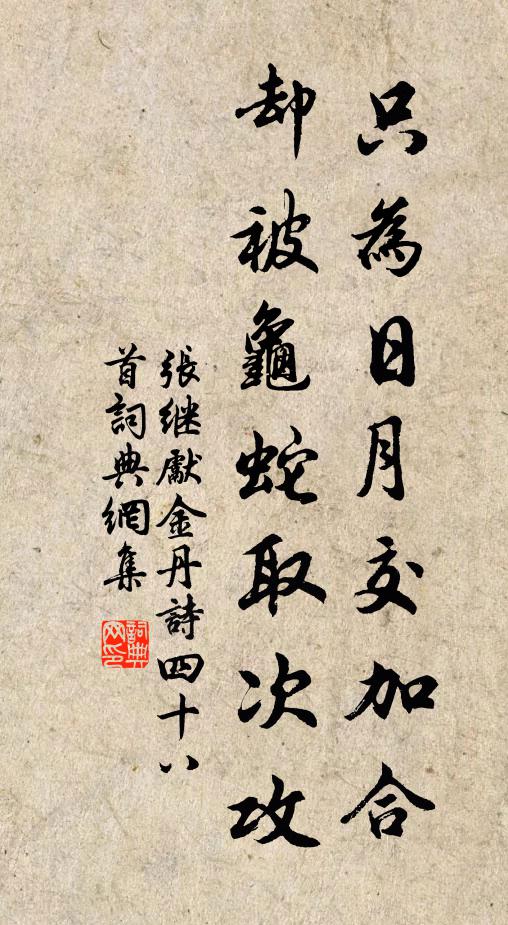 只為日月交加合
却被龜蛇取次攻
張继獻金丹詩四十八
首詞典網集
詞典
网印